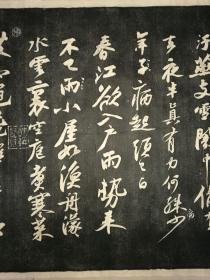 汙燕支雪闇中偷負
去夜半真有力何殊少
年子病起須已白
春江欲入戶雨勢來
不已雨小屋如漁舟濛
水雲裏空庖煮寒菜